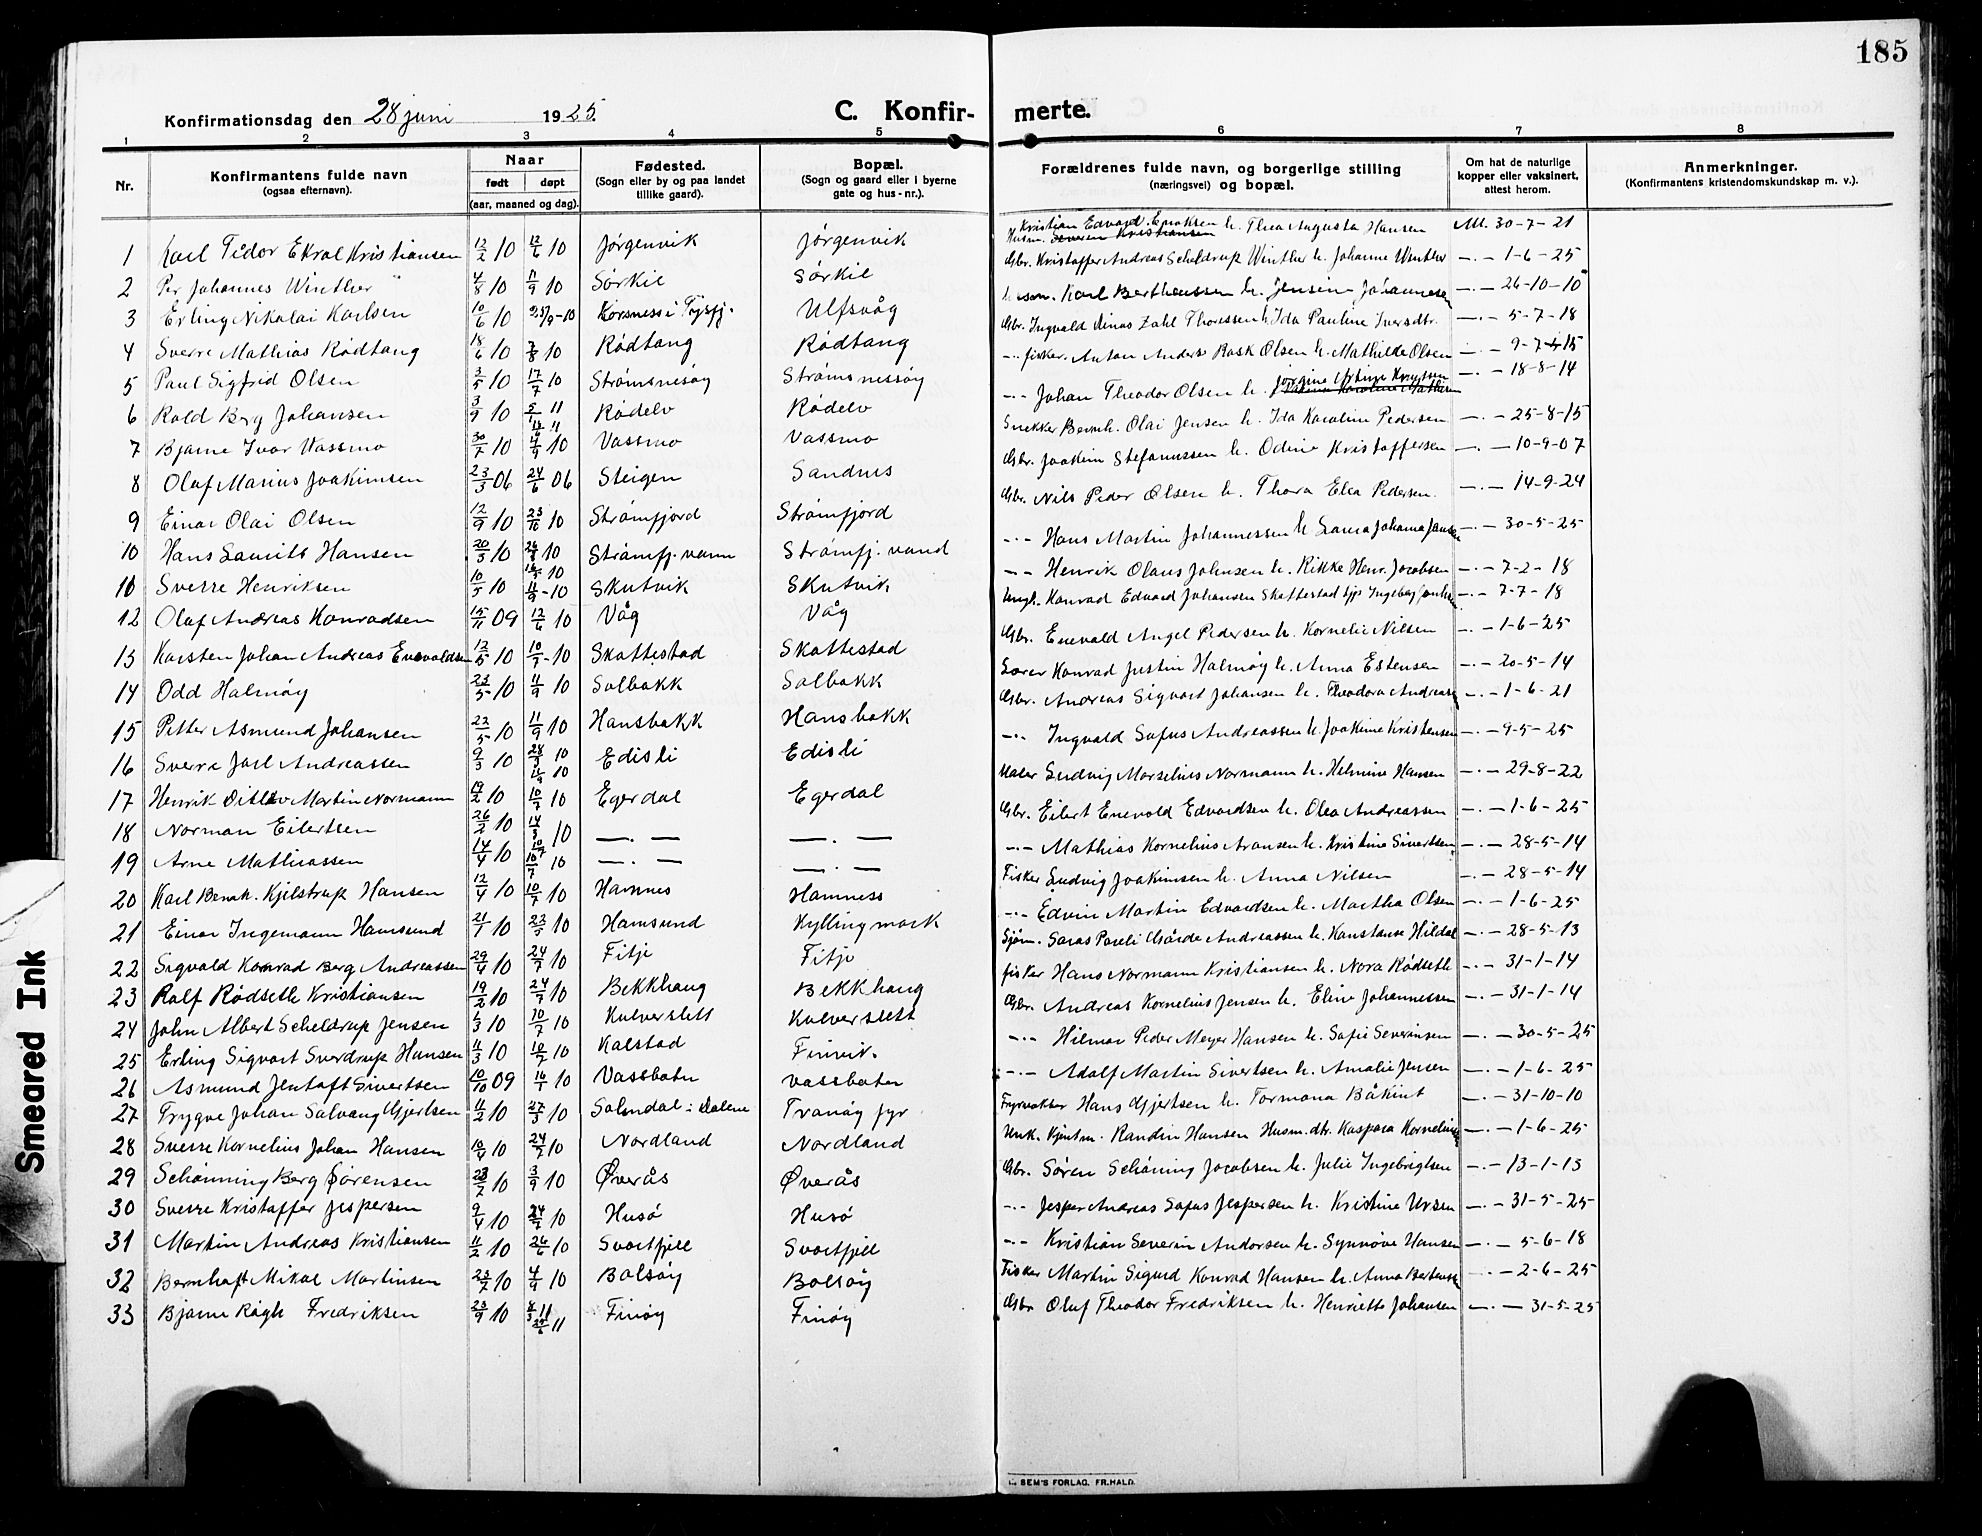 185
Konfirmationsdag den 28 juni 1925.
C. Konfir- merte.
1 2 3 4 5 6 7 8
Nr. Konfirmantens fulde navn (ogsaa efternavn). Naar født døpt (aar, maaned og dag). Fødested. (Sogn eller by og paa landet tillike gaard). Bopæl. (Sogn og gaard eller i byerne gate og hus-nr.). Forældrenes fulde navn, og borgerlige stilling (næringsvei) og bopæl. Om hat de naturlige kopper eller vaksinert, attest herom. Anmerkninger. (Konfirmantens kristendomskundskap m. v.).
1 Karl Tidor Ekral Kristiansen 12/2 10 12/6 10 Jørgenvik Jørgenvik Kristian Edvard Eriksen h. Thea Augusta Hansen Att. 30-7-21
2 Per Johannes Winther 4/8 10 11/9 10 Sørkil Sørkil Gbr. Kristoffer Andreas Scheldrup Winther h. Johanne Winther -.- 1-6-25
3 Erling Nikolai Karlsen 10/6 10 25/9-10 Korsness i Tysfj. Ulfsvåg Karl Bertheussen h. Jensine Johannesen -.- 26-10-10
4 Sverre Mathias Rødtang 18/6 10 7/8 10 Rødtang Rødtang Gbr. Ingvald Dinas Zahl Thoressen h. Ida Pauline Iversdtr. -.- 5-7-18
5 Paul Sigfrid Olsen 3/5 10 17/7 10 Strømsnesøy Strømsnessøy -.- fisker. Anton Anders Rask Olsen h. Mathilde Olsen -.- 9-7-15
6 Rold Berg Johansen 3/9 10 5/1 11 Rødelv Rødelv -.- Johan Theodor Olsen h. Jørgine Knutsen -.- 18-8-14
7 Bjarne Ivar Vassmo 30/7 10 4/9 10 Vassmo Vassmo Snekker Bernh. Olai Jensen h. Ida Karoline Pedersen -.- 25-8-15
8 Olaf Marius Joakimsen 23/3 06 24/6 06 Steigen Sandnes Gbr. Joakim Stefanussen h. Odine Kristoffersen -.- 10-9-07
9 Einar Olai Olsen 12/9 10 23/10 10 Strømfjord Strømfjord Gbr. Nils Peder Olsen h. Thora Elea Pedersen -.- 14-9-24
10 Hans Laurits Hansen 20/3 10 10 Strømfj. vann Strømfj. vand -.- Hans Martin Johannessen h. Laura Johanna Jansen -.- 30-5-25
10 Sverre Henriksen 10/5 10 11/9-10 Skutvik Skutvik -.- Henrik Olaus Johnsen h. Rikke Henr. Jacobsen -.- 7-2-18
12 Olaf Andreas Konradsen 15/11 09 12/6 10 Våg Våg Ungk. Konrad Edvard Johansen Skattestad Ingeborg -.- 7-7-18
13 Karsten Johan Andreas Enevoldsen 12/5 10 10/7-10 Skottestad Skottestad Gbr. Enevald Angel Pedersen h. Kornelie Nilsen -.- 1-6-25
14 Odd Halmøy 23/5 10 11/9 10 Solbakk Solbakk Lærer Konrad Justin Halmøy h. Anna Estensen -.- 20-5-14
15 Petter Asmund Johansen 22/5 10 11/9 10 Hansbakk Hansbakk Gbr. Andreas Sigvart Johansen h. Theodora Andreasen -.- 1-6-21
16 Sverre Joel Andreassen 9/3 10 28/3 10 Edisli Edisli -.- Ingvald Sofus Andreassen h. Joakime Kristensen -.- 9-5-25
17 Henrik Ditlev Martin Normann 17/2 10 10/7 10 Egerdal Egerdal Maler Ludvig Marselius Normann h. Helmine Hansen -.- 29-8-22
18 Norman Eilertsen 26/2 10 14/3 10 -.- -.- Gbr. Eilert Enevold Edvardsen h. Olea Andreassen -.- 1-6-25
19 Arne Mathiassen 14/4 10 10/7 10 -.- -.- -.- Mathias Kornelius Aronsen h. Kristine Sivertsen -.- 28-5-14
20 Karl Bernh. Kjelstrup Hansen 12/4 10 10/7 10 Hamnes Hamness Fisker Ludvig Joakimsen h. Anna Nilsen -.- 28-5-14
21 Einar Ingemann Hamsund 21/1 10 23/5 10 Hamsund Kyllingmark -.- Edvin Martin Edvardsen h. Martha Olsen -.- 1-6-25
22 Sigvald Konrad Berg Andreassen 29/4 10 24/7 10 Fitje Fitje Sjøm. Andreassen h. Konstanse Hildal -.- 28-5-13
23 Rolf Rødseth Kristiansen 19/2 10 24/7 10 Bekkhaug Bekkhaug fisker Hans Normann Kristiansen h. Nora Rødseth -.- 31-1-14
24 John Albert Scheldrup Jensen 1/3 10 10/7 10 Kulverslett Kulverslett Gbr. Andreas Kornelius Jensen h. Eline Johannessen -.- 31-1-14
25 Erling Sigvart Sverdrup Hansen 11/3 10 10/7 10 Kalstad Finvik. -.- Hilmar Peder Meyer Hansen h. Sofie Severinsen -.- 30-5-25
26 Asmund Jentoft Sivertsen 10/10 09 16/1 10 Vassbotn Vassbotn -.- Adolf Martin Sivertsen h. Amalie Jensen -.- 1-6-25
27 Trygve Johan Solvang Gjertsen 11/2 10 27/3 10 Solmdal i Dalene Tranøy fyr Fyrvokter Hans Gjertsen h. Tormana Båkint -.- 31-10-10
28 Sverre Kornelius Johan Hansen 10/4 10 24/7 10 Nordland Nordland Unk. Kjøbm. Randin Hansen Husm. dtr. Kaspara Kornelius -.- 1-6-25
29 Schønning Berg Sørensen 23/7 10 3/9 10 Øverås Øverås Gbr. Søren Schøning Jacobsen h. Julie Ingebrigtsen -.- 13-1-13
30 Sverre Kristoffer Jespersen 9/4 10 24/7 10 Husø Husø -.- Jesper Andreas Sofus Jespersen h. Kristine Ursen -.- 31-5-25
31 Martin Andreas Kristiansen 11/2 10 26/6 10 Svartfjell Svartfjell -.- Kristian Severin Andorsen h. Synnøve Hansen -.- 5-6-18
32 Bernhoft Mikal Martinsen 23/7 10 4/9 10 Bolsøy Bolsøy Fisker Martin Sigurd Konrad Hansen h. Anna Bertensen -.- 2-6-25
33 Bjarne Røgh Fredriksen 23/9 10 4/3 11 25/6 11 Finøy Finøy Gbr Oluf Theodor Fredriksen h. Henriette Johansen -.- 31-5-25
SEM'S FORLAG, FR.HALD.
Smeared Ink